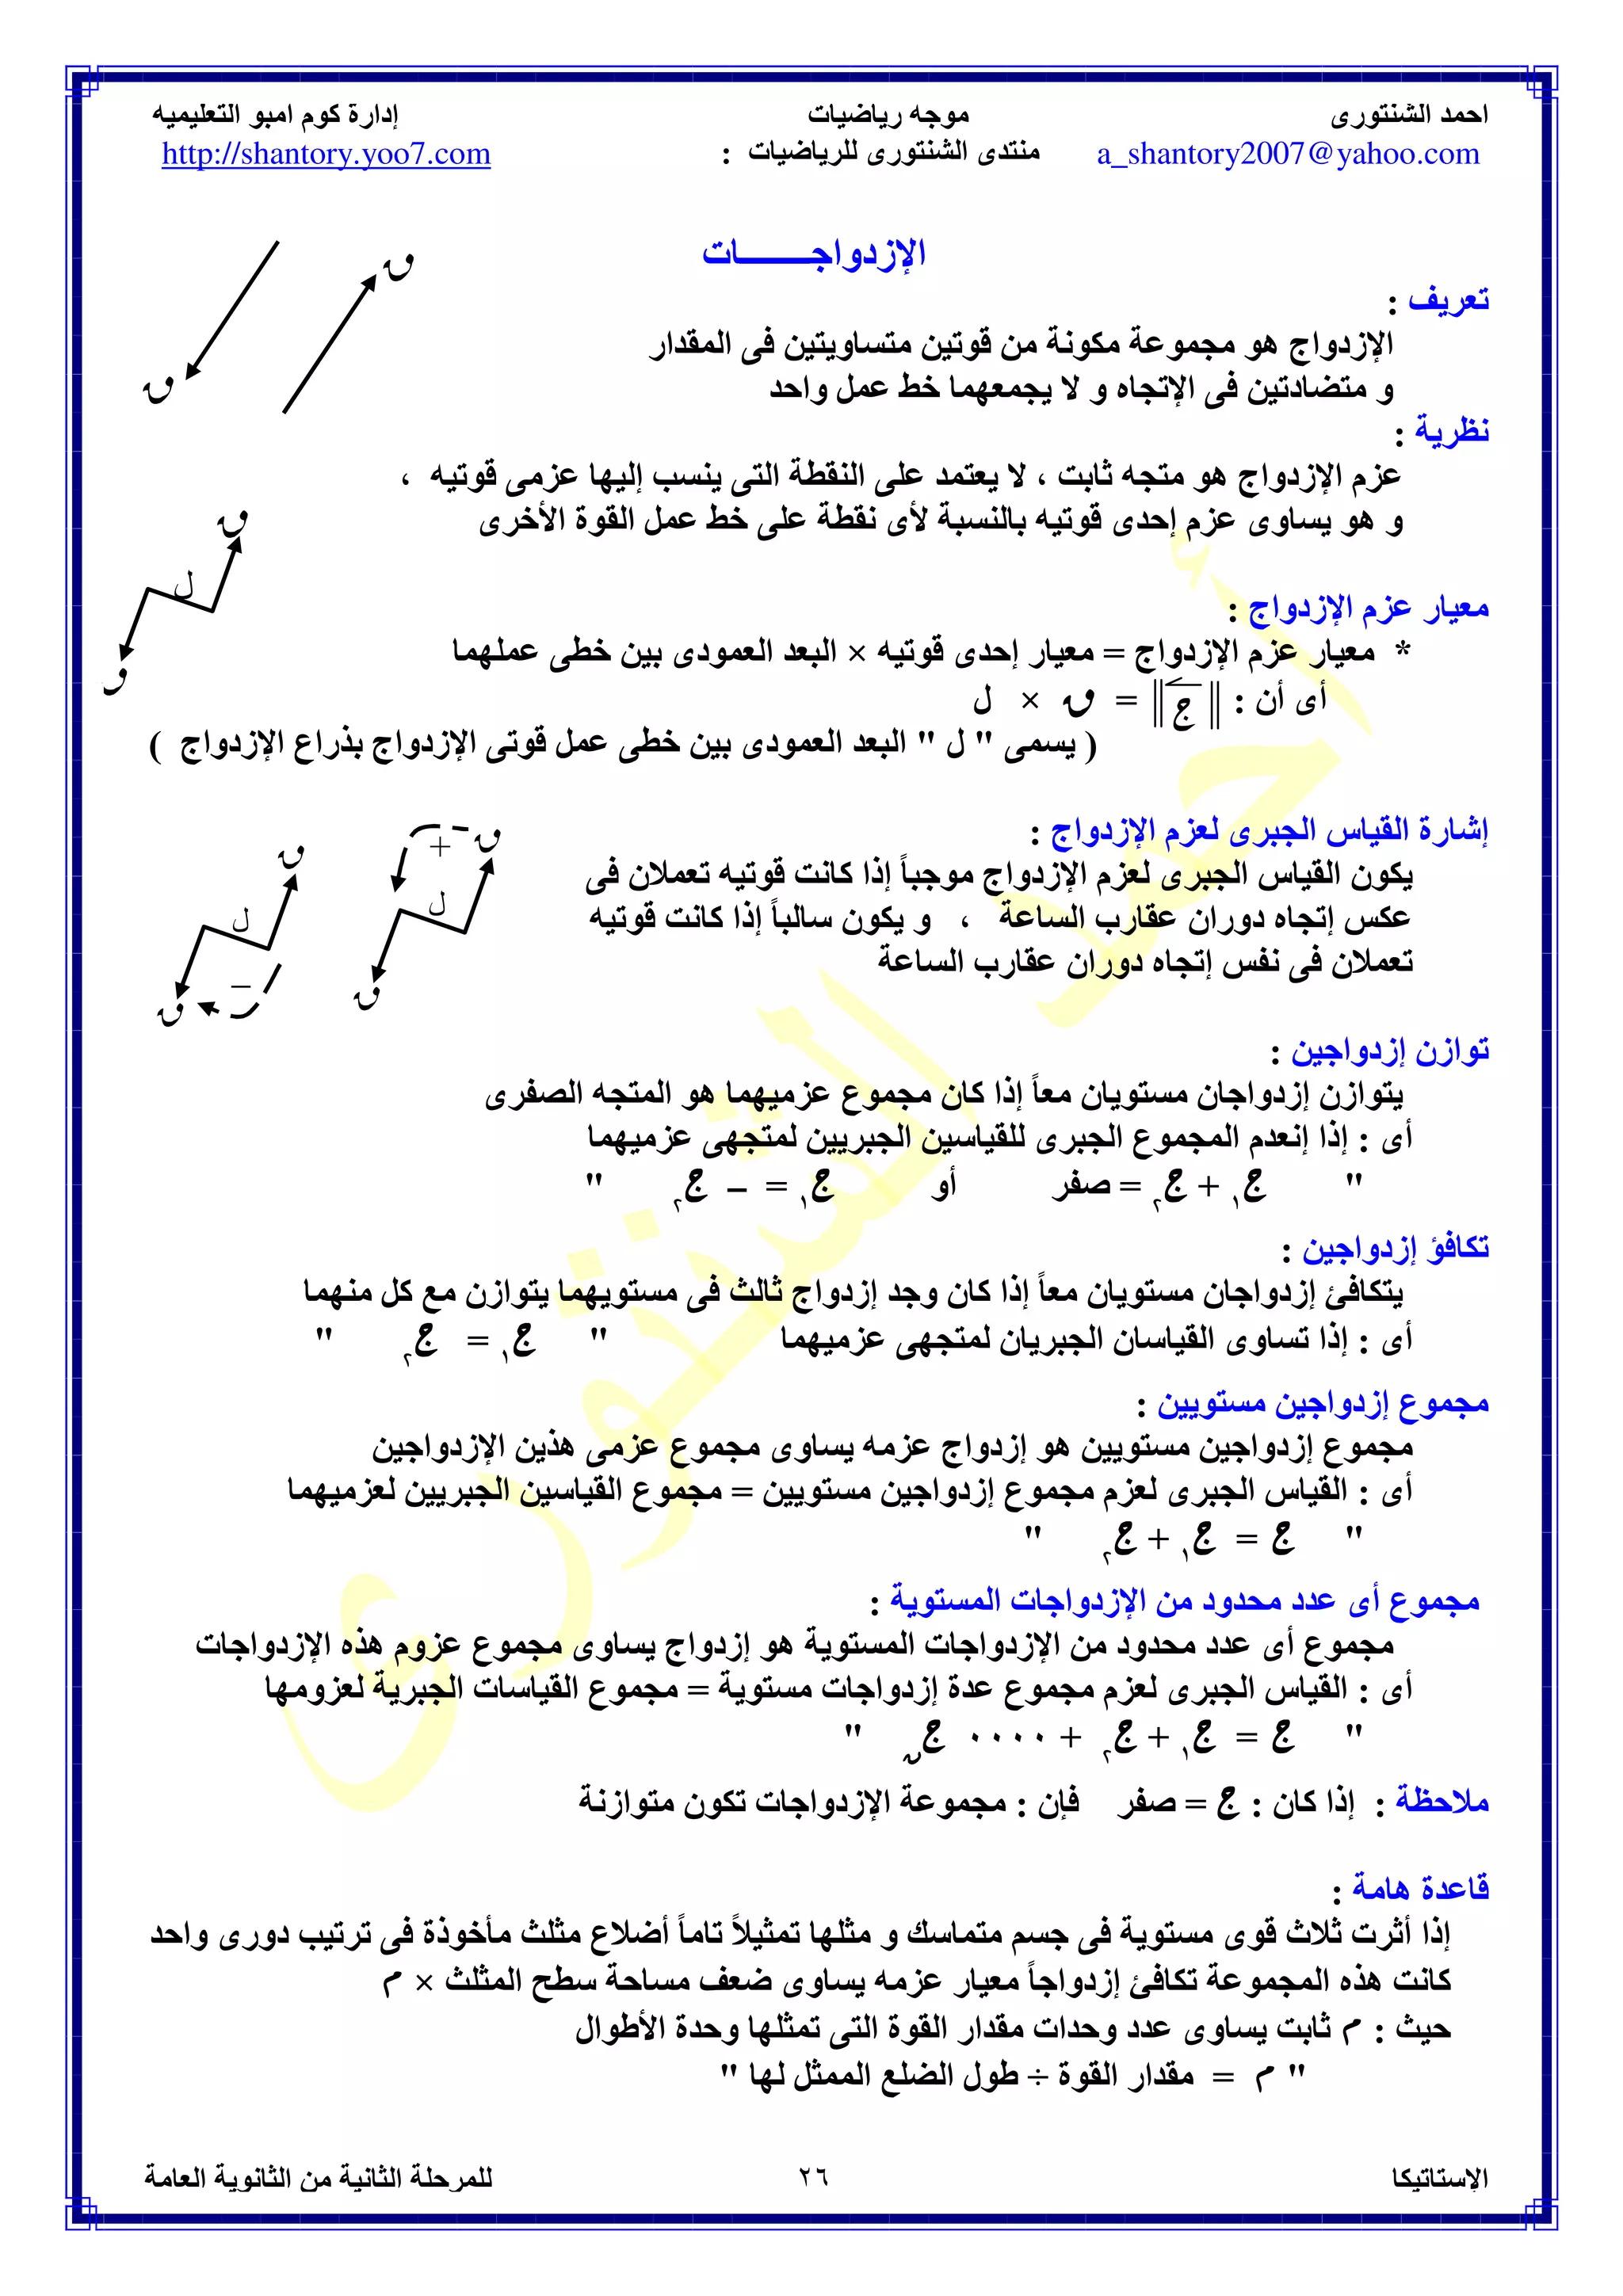 احمد الشنتورى موجه رياضيات إدارة كوم امبو التعليميه
a_shantory2007@yahoo.com منتدى الشنتورى للرياضيات : http://shantory.yoo7.com
الإزدواجـــــــات
تعريف :
الإزدواج هو مجموعة مكونة من قوتين متساويتين فى المقدار
و متضادتين فى الإتجاه و لا يجمعهما خط عمل واحد
ق
ق
نظرية :
عزم الإزدواج هو متجه ثابت ، لا يعتمد على النقطة التى ينسب إليها عزمى قوتيه ،
و هو يساوى عزم إحدى قوتيه بالنسبة لأى نقطة على خط عمل القوة الأخرى
ق
ل
ق
معيار عزم الإزدواج :
* معيار عزم الإزدواج = معيار إحدى قوتيه × البعد العمودى بين خطى عملهما
أى أن : || ج || = ق × ل
( يسمى " ل " البعد العمودى بين خطى عمل قوتى الإزدواج بذراع الإزدواج )
إشارة القياس الجبرى لعزم الإزدواج :
يكون القياس الجبرى لعزم الإزدواج موجباً إذا كانت قوتيه تعملان فى
عكس إتجاه دوران عقارب الساعة ، و يكون سالباً إذا كانت قوتيه
تعملان فى نفس إتجاه دوران عقارب الساعة
ق + ل ق
ق ل – ق
توازن إزدواجين :
يتوازن إزدواجان مستويان معاً إذا كان مجموع عزميهما هو المتجه الصفرى
أى : إذا إنعدم المجموع الجبرى للقياسين الجبريين لمتجهى عزميهما
" ج١ + ج٢ = صفر أو ج١ = – ج٢ "
تكافؤ إزدواجين :
يتكافئ إزدواجان مستويان معاً إذا كان وجد إزدواج ثالث فى مستويهما يتوازن مع كل منهما
أى : إذا تساوى القياسان الجبريان لمتجهى عزميهما " ج١ = ج٢ "
مجموع إزدواجين مستويين :
مجموع إزدواجين مستويين هو إزدواج عزمه يساوى مجموع عزمى هذين الإزدواجين
أى : القياس الجبرى لعزم مجموع إزدواجين مستويين = مجموع القياسين الجبريين لعزميهما
" ج = ج١ + ج٢ "
مجموع أى عدد محدود من الإزدواجات المستوية :
مجموع أى عدد محدود من الإزدواجات المستوية هو إزدواج يساوى مجموع عزوم هذه الإزدواجات
أى : القياس الجبرى لعزم مجموع عدة إزدواجات مستوية = مجموع القياسات الجبرية لعزومها
" ج = ج١ + ج٢ + ٠٠٠٠ جن "
ملاحظة : إذا كان : ج = صفر فإن : مجموعة الإزدواجات تكون متوازنة
قاعدة هامة :
إذا أثرت ثلاث قوى مستوية فى جسم متماسك و مثلها تمثيلاً تاماً أضلاع مثلث مأخوذة فى ترتيب دورى واحد
كانت هذه المجموعة تكافئ إزدواجاً معيار عزمه يساوى ضعف مساحة سطح المثلث × م
حيث : م ثابت يساوى عدد وحدات مقدار القوة التى تمثلها وحدة الأطوال
" م = مقدار القوة ÷ طول الضلع الممثل لها "
أحمد الشنتورى
الإستاتيكا ٢٦ للمرحلة الثانية من الثانوية العامة